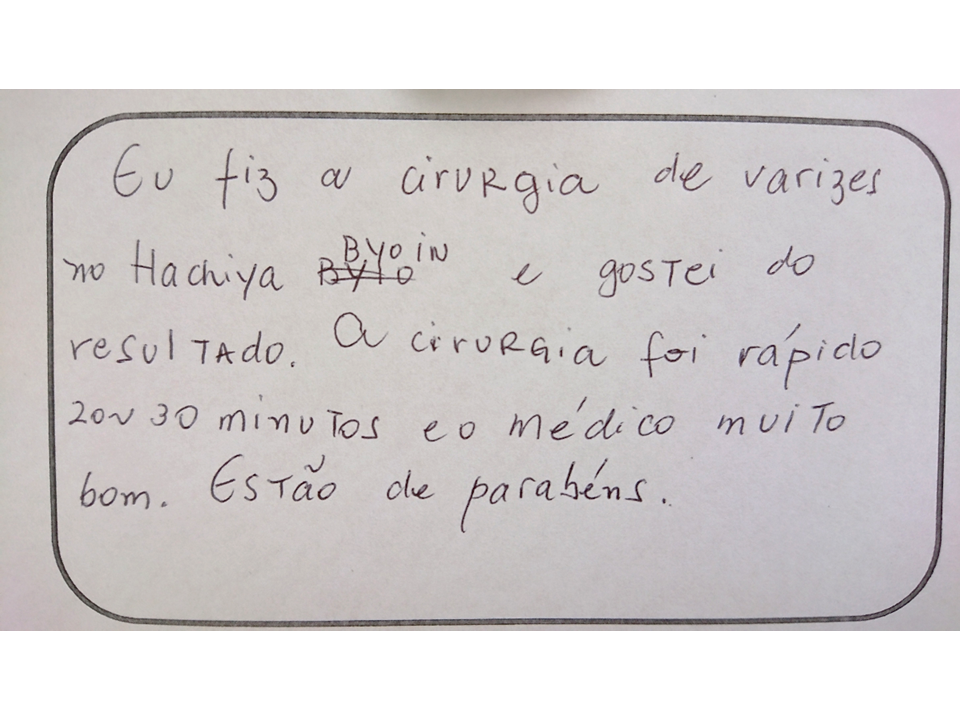 Eu fiz a cirurgia de varizes
no Hachiya Byoin e gostei do
resultado. A cirurgia foi rápido
20~30 minutos e o médico muito
bom. Estão de parabéns.